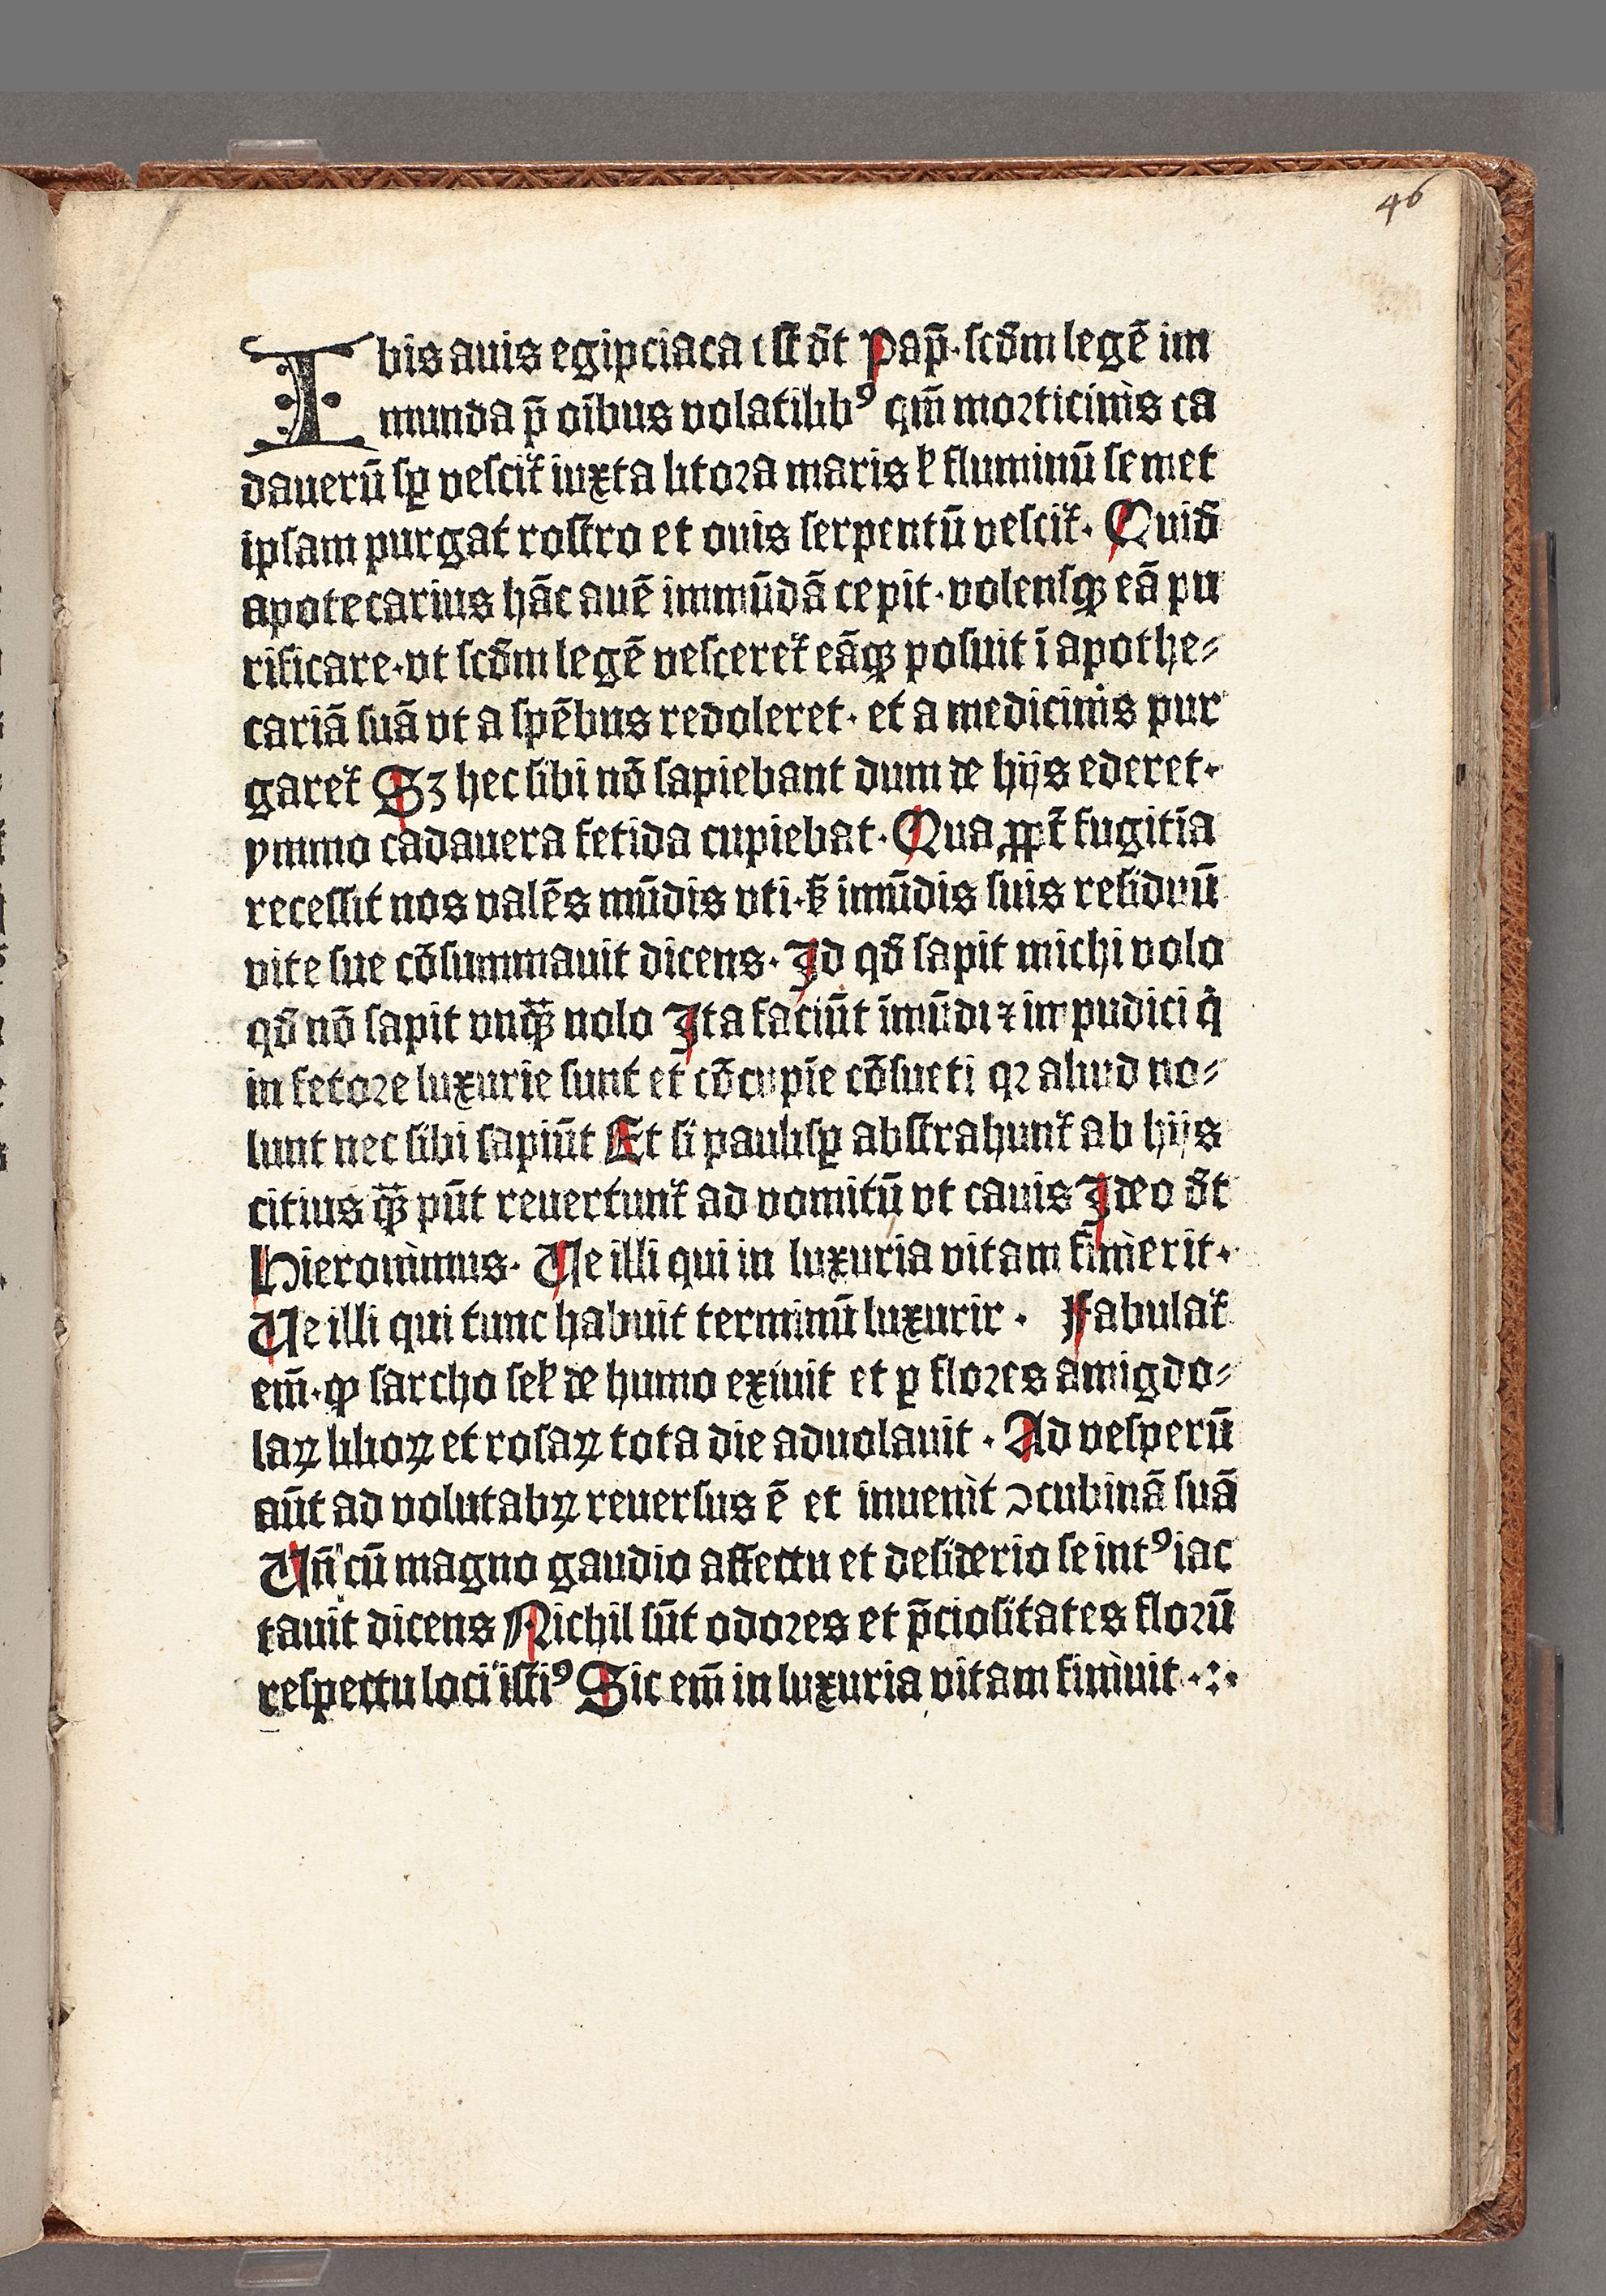 46
Ibis auis egipciaca ē ſt̄ dt̄ Pap̄. ſcd̄m legē im
munda p̄ oībus volatilibꝰ qm̄ morticinis ca
dauerū ſꝑ veſcit᷑ iuxta litora maris ⁊ fluminū ſemet
ipſam purgat roſtro et ouis ſerpentū veſcit᷑. Quid̄
apotecarius hāc auē immūdā cepit. volenſqꝫ eā pu
rificare. vt ſcd̄m legē veſceret᷑ eāqꝫ poſuit ī apothe⸗
cariā ſuā vt a ſpēbus redoleret. et a medicinis pur
garet᷑ Sꝫ hec ſibi nō ſapiebant dum de hijs ederet.
ymmo cadauera fetida cupiebat. Qua ꝓpt̄ fugitīa
receſſit nos valēs mūdis vti. ſꝫ imūdis ſuis reſiduū
vite ſue cōſummauit dicens. Id qd̄ ſapit michi volo
qd̄ nō ſapit vnqꝫ̄ nolo Ita faciūt īmūdi ⁊ impudici q̇
in fetore luxurie ſunt et cōcupīe cōſueti qꝛ aliud no⸗
lunt nec ſibi ſapiūt Et ſi pauliſꝑ abſtrahunt᷑ ab hijs
citius qꝫ̄ pūt reuertunt᷑ ad vomitū vt canis Ideo dt̄
Hieronimus. Ve illi qui in luxuria vitam finierit.
Ve illi qui tunc habuit terminū luxurir. Fabulat᷑
em̄. ꝙ ſarcho ſel̄ de humo exiuit et ꝑ flores amigdo⸗
laꝝ lilioꝝ et roſaꝝ tota die aduolauit. Ad veſperū
aūt ad volutabꝝ reuerſus ē et inuenit ꝯcubinā ſuā
Vn̄ cū magno gaudio affectu et deſiderio ſe intꝰ iac
tauit dicens Nichil ſūt odores et p̄cioſitates florū
reſpectu loci iſtiꝰ Sic em̄ in luxuria vitam finiuit .:.